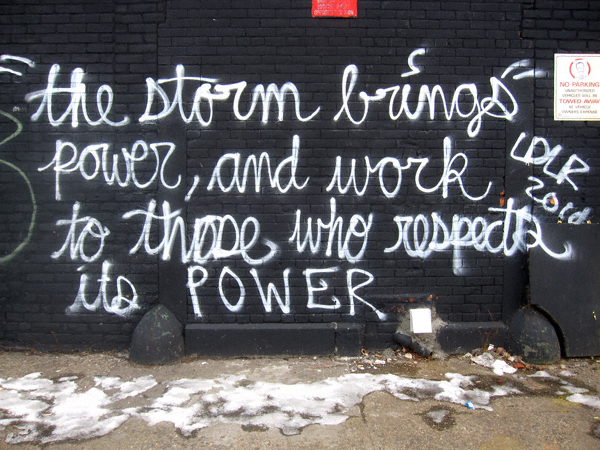 "the storm brings"
power, and work
to those who respects
its POWER
LDLR
NO PARKING
UNAUTHORIZED
VEHICLES WILL BE
TOWED AWAY
AT VEHICLE
OWNERS EXPENSE